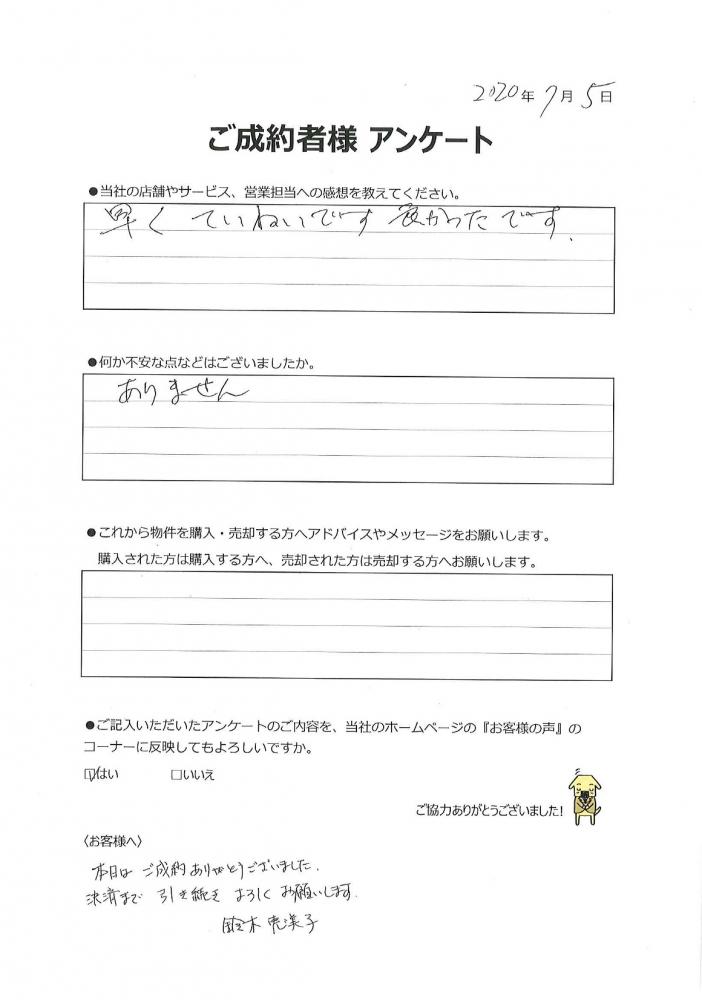 2020年7月5日
ご成約者様 アンケート
●当社の店舗やサービス、営業担当への感想を教えてください。
早く ていねいです 良かったです.
●何か不安な点などはございましたか。
ありません
●これから物件を購入・売却する方へアドバイスやメッセージをお願いします。
購入された方は購入する方へ、売却された方は売却する方へお願いします。
●ご記入いただいたアンケートのご内容を、当社のホームページの『お客様の声』の
コーナーに反映してもよろしいですか。
☑はい □いいえ
ご協力ありがとうございました!
〈お客様へ〉
本日は ご成約ありがとうございました.
決済まで 引き続き よろしく お願いします.
鈴木